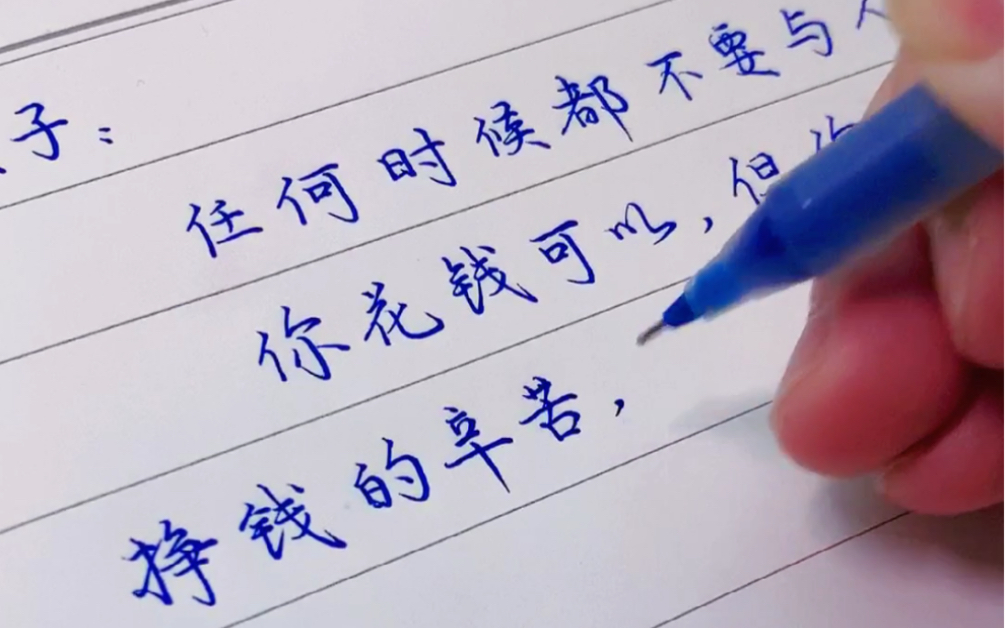 子：
任何时候都不要与人
你花钱可以，但你
挣钱的辛苦，